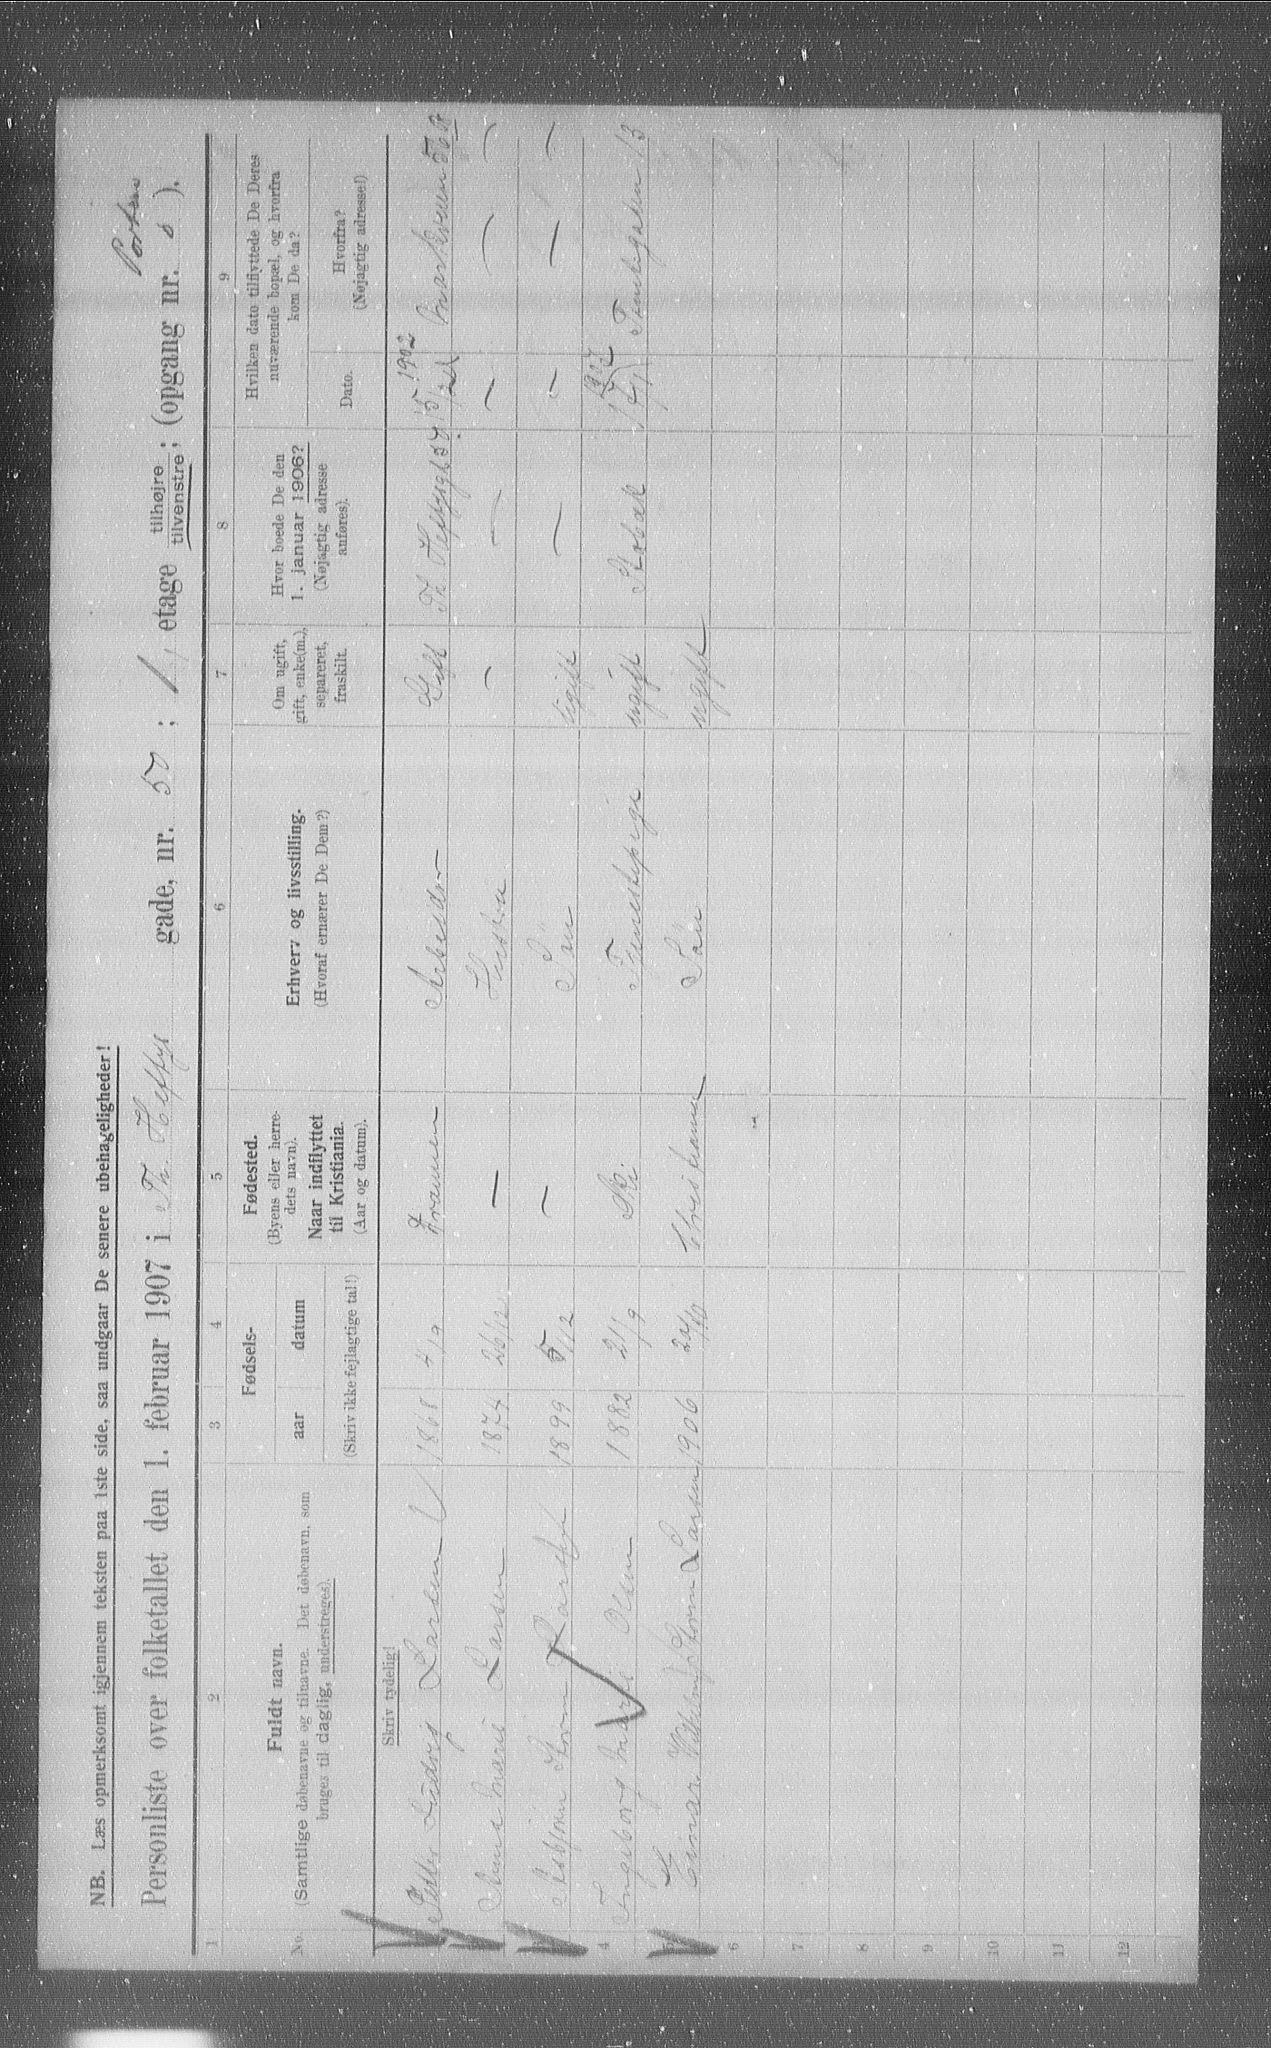 NB. Læs opmerksomt igjennem teksten paa 1ste side, saa undgaar De senere ubehageligheder!
Personliste over folketallet den 1. februar 1907 i Th. Heftys gade, nr. 50; 1 etage tilhøjre tilvenstre; (opgang nr. Porten 6).
1 2 3 4 5 6 7 8 9
No. Fuldt navn. (Samtlige døbenavne og tilnavne. Det døbenavn, som bruges til daglig, understreges).
Fødsels-
aar datum
(Skriv ikke fejlagtige tal!)
Fødested.
(Byens eller herredets navn).
Naar indflyttet til Kristiania.
(Aar og datum).
Erhverv og livsstilling.
(Hvoraf ernærer De Dem?)
Om ugift, gift, enke(m.), separeret, fraskilt.
Hvor boede De den 1. januar 1906?
(Nøjagtig adresse anføres).
Hvilken dato tilflyttede De Deres nuværende bopæl, og hvorfra kom De da?
Dato.
Hvorfra?
(Nøjagtig adresse!)
Skriv tydelig!
Ludvig Larsen 1868 4/9 Drammen Arbeider Gift Th. Heftysgt 50 15/2 1902 Markveien 50 B
Anna Marie Larsen 1874 26/12 — Hustru — — — — —
Asbjørn Storm 1899 5/12 — Søn Ugift — — — —
4 Ingeborg Marie Olsen 1882 21/9 Ski Tjenestepige ugift 1907
5 Einar Vilhelm Storm Larsen 1906 24/10 Christiania Søn ugift
6
7
8
9
10
11
12